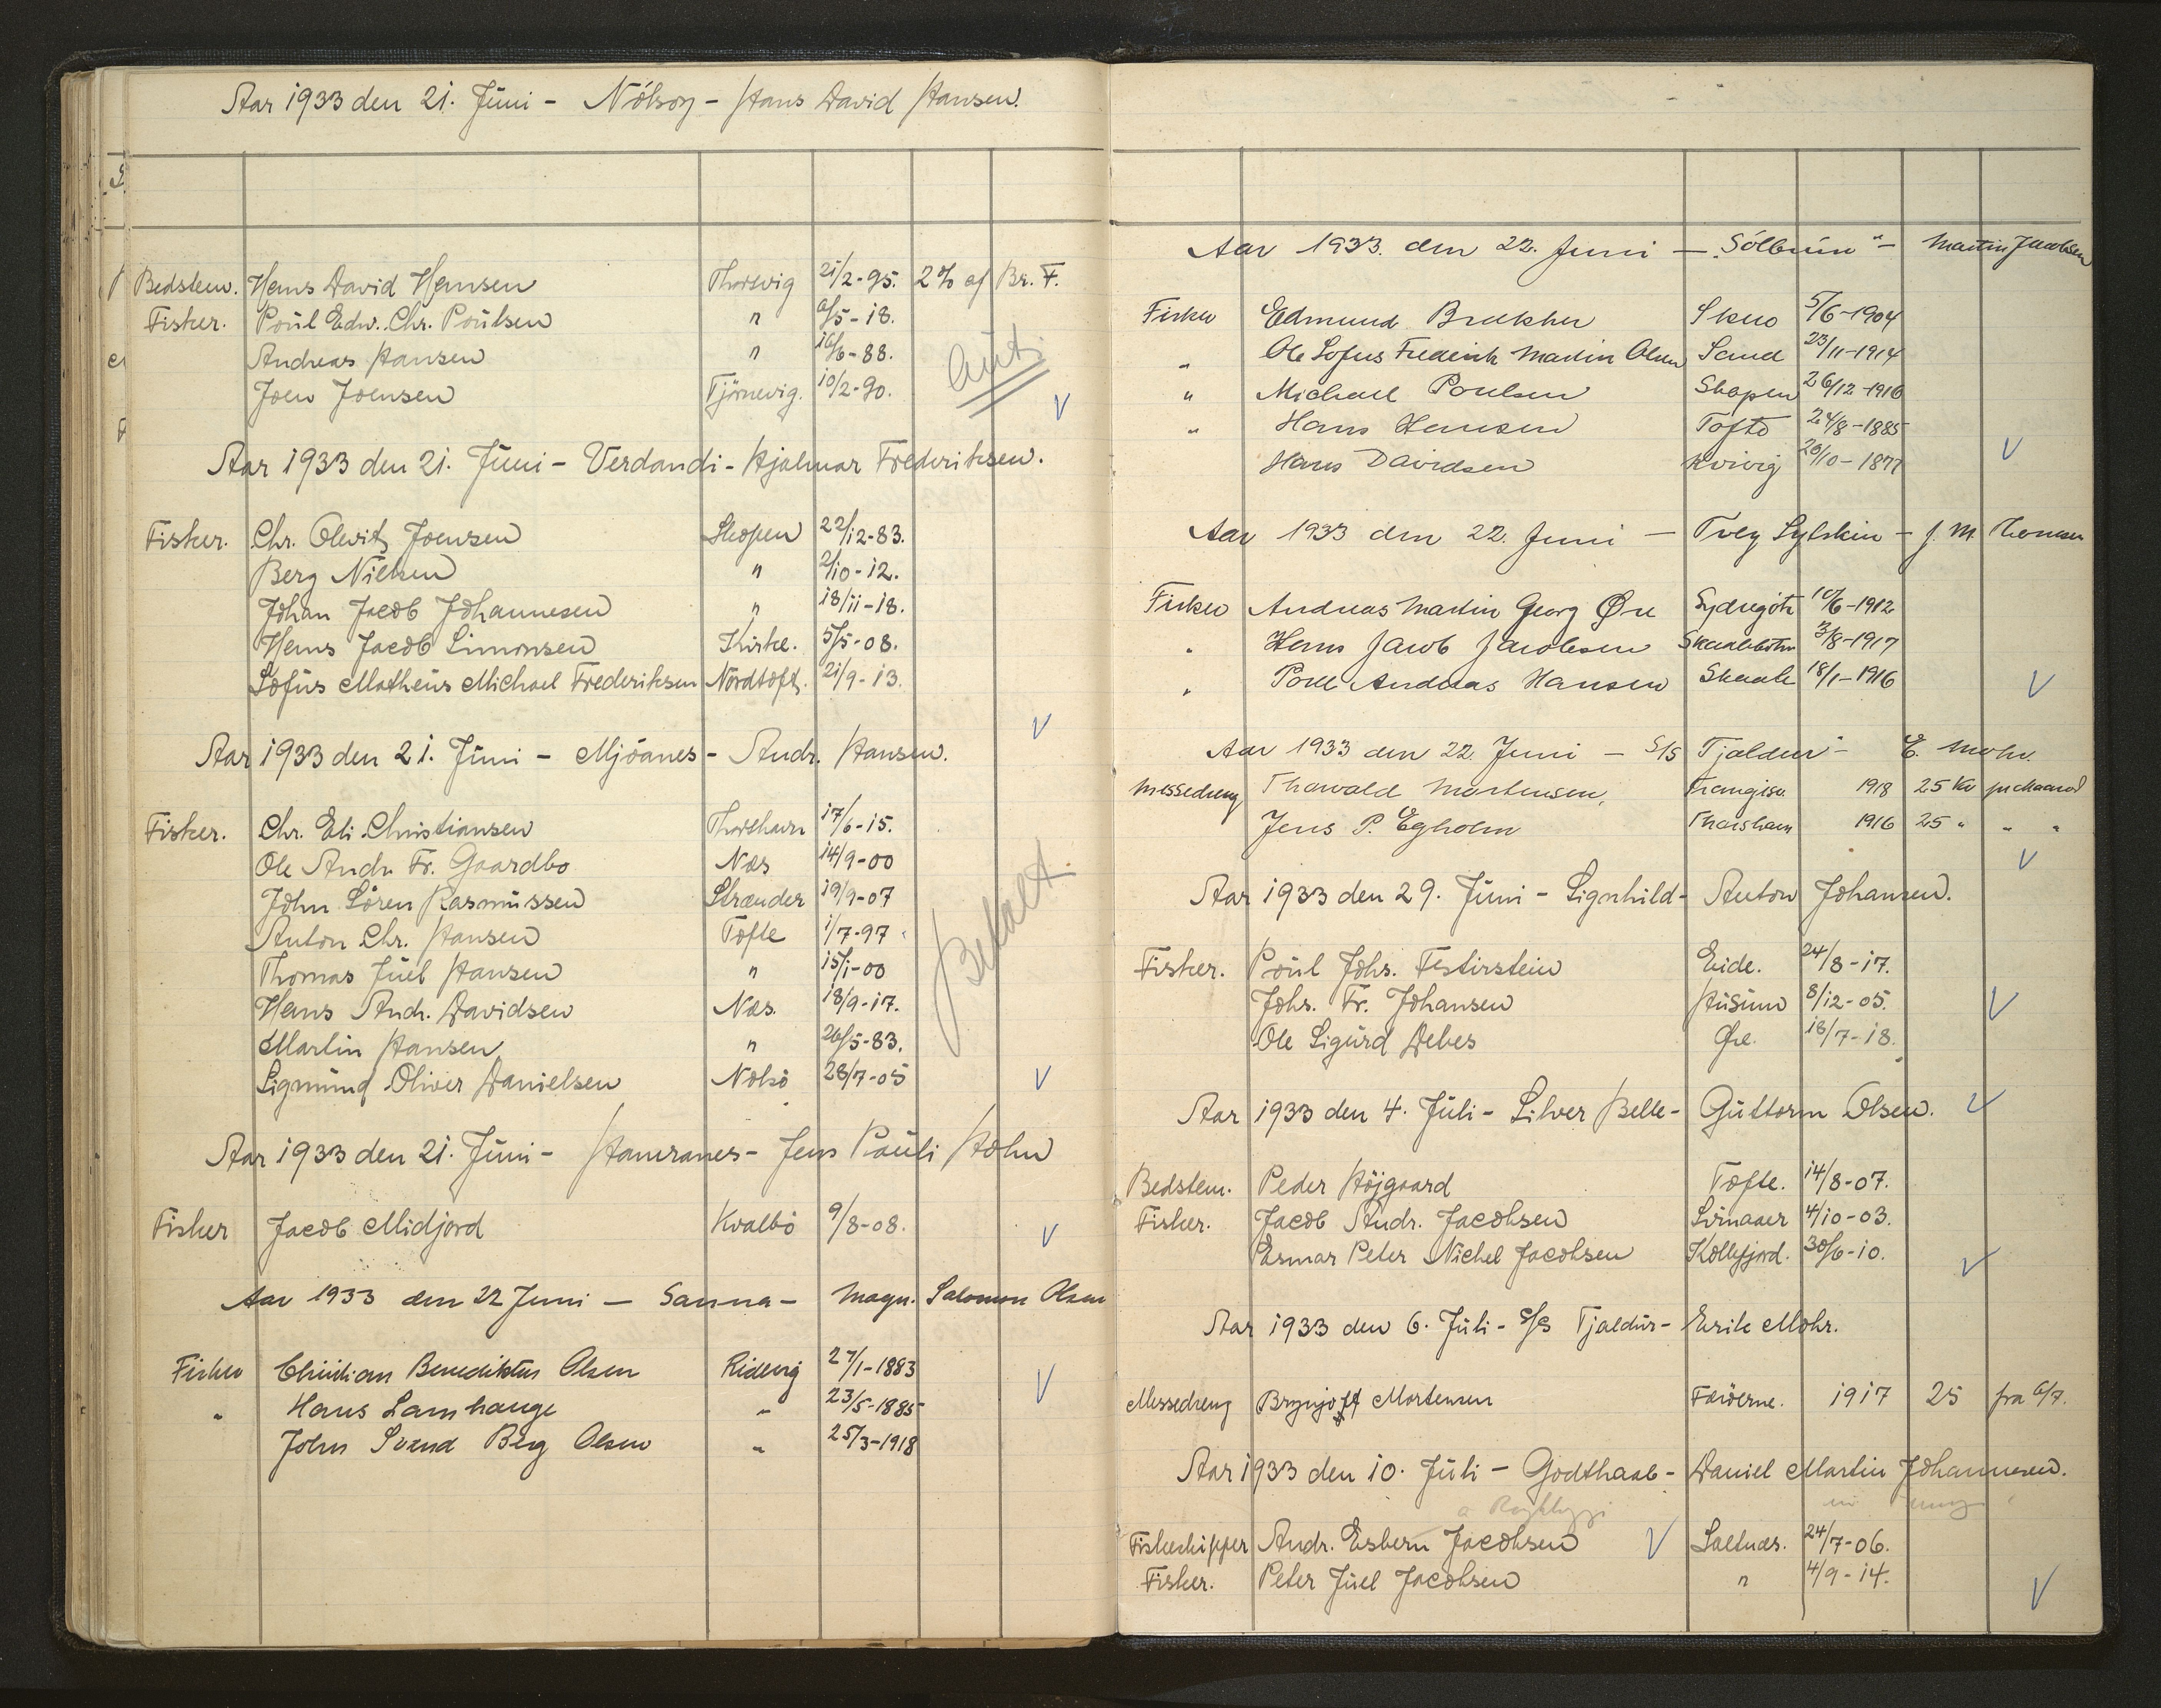 Aar 1933 den 21. Júni - Nólsoy - Hans David Hansen.
Bedstem. Hans David Hansen Thorsvig 21/2-95. 2% af Br. F.
Fisker. Poúl Edw. Chr. Poúlsen " 6/5-18.
Andreas Hansen " 16/6-88.
Joen Joensen Tjörnevig. 10/2-90.
Aar 1933 den 21. Júni - Verdandi - Hjalmar Frederiksen.
Fisker. Chr. Olevit Joensen Skopen 22/12-83.
Berg Nielsen " 2/10-12.
Johan Jacob Johannesen " 18/11-18.
Hans Jacob Simonsen Kirke. 5/5-08.
Sofús Matheús Michael Frederiksen Nordtoft. 21/9-13.
Aar 1933 den 21. Júni - Mjóanes - Andr. Hansen.
Fisker. Chr. Eli Christiansen Thorshavn 17/6-15.
Ole Andr. Fr. Gaardbo Næs 14/9-00
John Sören Rasmússen Strænder 19/9-07
Anton Chr. Hansen Tofte 1/7-97
Thomas Júel Hansen " 15/1-00
Hans Andr. Davidsen Næs. 18/9-17.
Martin Hansen " 26/5-83.
Sigmúnd Oliver Danielsen Nolsö 28/7-05
Betalt
Aar 1933 den 21. Júni - Hamranes - Jens Paúli Holm
Fisker Jacob Midjord Kvalbö 9/8-08.
Aar 1933 den 22 Juni - Sanna - Magn. Salomon Olsen
Fisker Christian Benediktus Olsen Ridevig 27/1-1883
" Hans Lamhauge " 23/5-1885
John Svend Berg Olsen " 25/3-1918
Aar 1933. den 22. Juni - "Sólbrún" - Martin Jacobsen
Fisker Edmund Skuo 5/6-1904
" Ole Sofus Frederik Martin Olsen Sand 23/11-1914
" Michael Poulsen Skopen 26/12-1916
" Hans Hansen Tofte 24/8-1885
Hans Davidsen Kvivig 20/10-1877
Aar 1933 den 22. Juni - Tvey Sylskin - J. M. Thomsen
Fisker Andreas Martin Georg Øre Sydregöte 10/6-1912
" Hans Jacob Jacobsen 3/8-1917
" Poul Andreas Hansen Skaale 18/1-1916
Aar 1933 den 22. Juni - S/S Tjaldur" - E. Mohr.
Messedreng Thorvald Mortensen, Frangisv. 1918 25 Kr pr Maaned
Jens P. Egholm Thorshavn 1916 25 " " "
Aar 1933 den 29. Júni - Signhild - Anton Johansen.
Fisker. Poúl Johs. Festirstein Eide. 24/8-17.
Johs. Fr. Johansen Húsúm 8/12-05.
Ole Sigúrd Debes Øre. 18/7-18.
Aar 1933 den 4. Júli - Silver Belle - Gúttorm Olsen.
Bedstem. Peder Höjgaard Tofte. 14/8-07.
Fisker. Jacob Andr. Jacobsen Svinaaer 4/10-03.
Esmar Peter Nichel Jacobsen Kollefjord. 30/6-10.
Aar 1933 den 6. Júli - S/S Tjaldúr - Erik Mohr.
Messedreng Brynjolf Mortensen Færöerne. 1917 25 fra 6/7.
Aar 1933 den 10. Júli - Godthaab - Daniel Martin Johannesen.
Fiskeskipper Andr. Esbern Jacobsen Saltnes. 24/7-06.
Fisker. Peter Júel Jacobsen " 4/9-14.